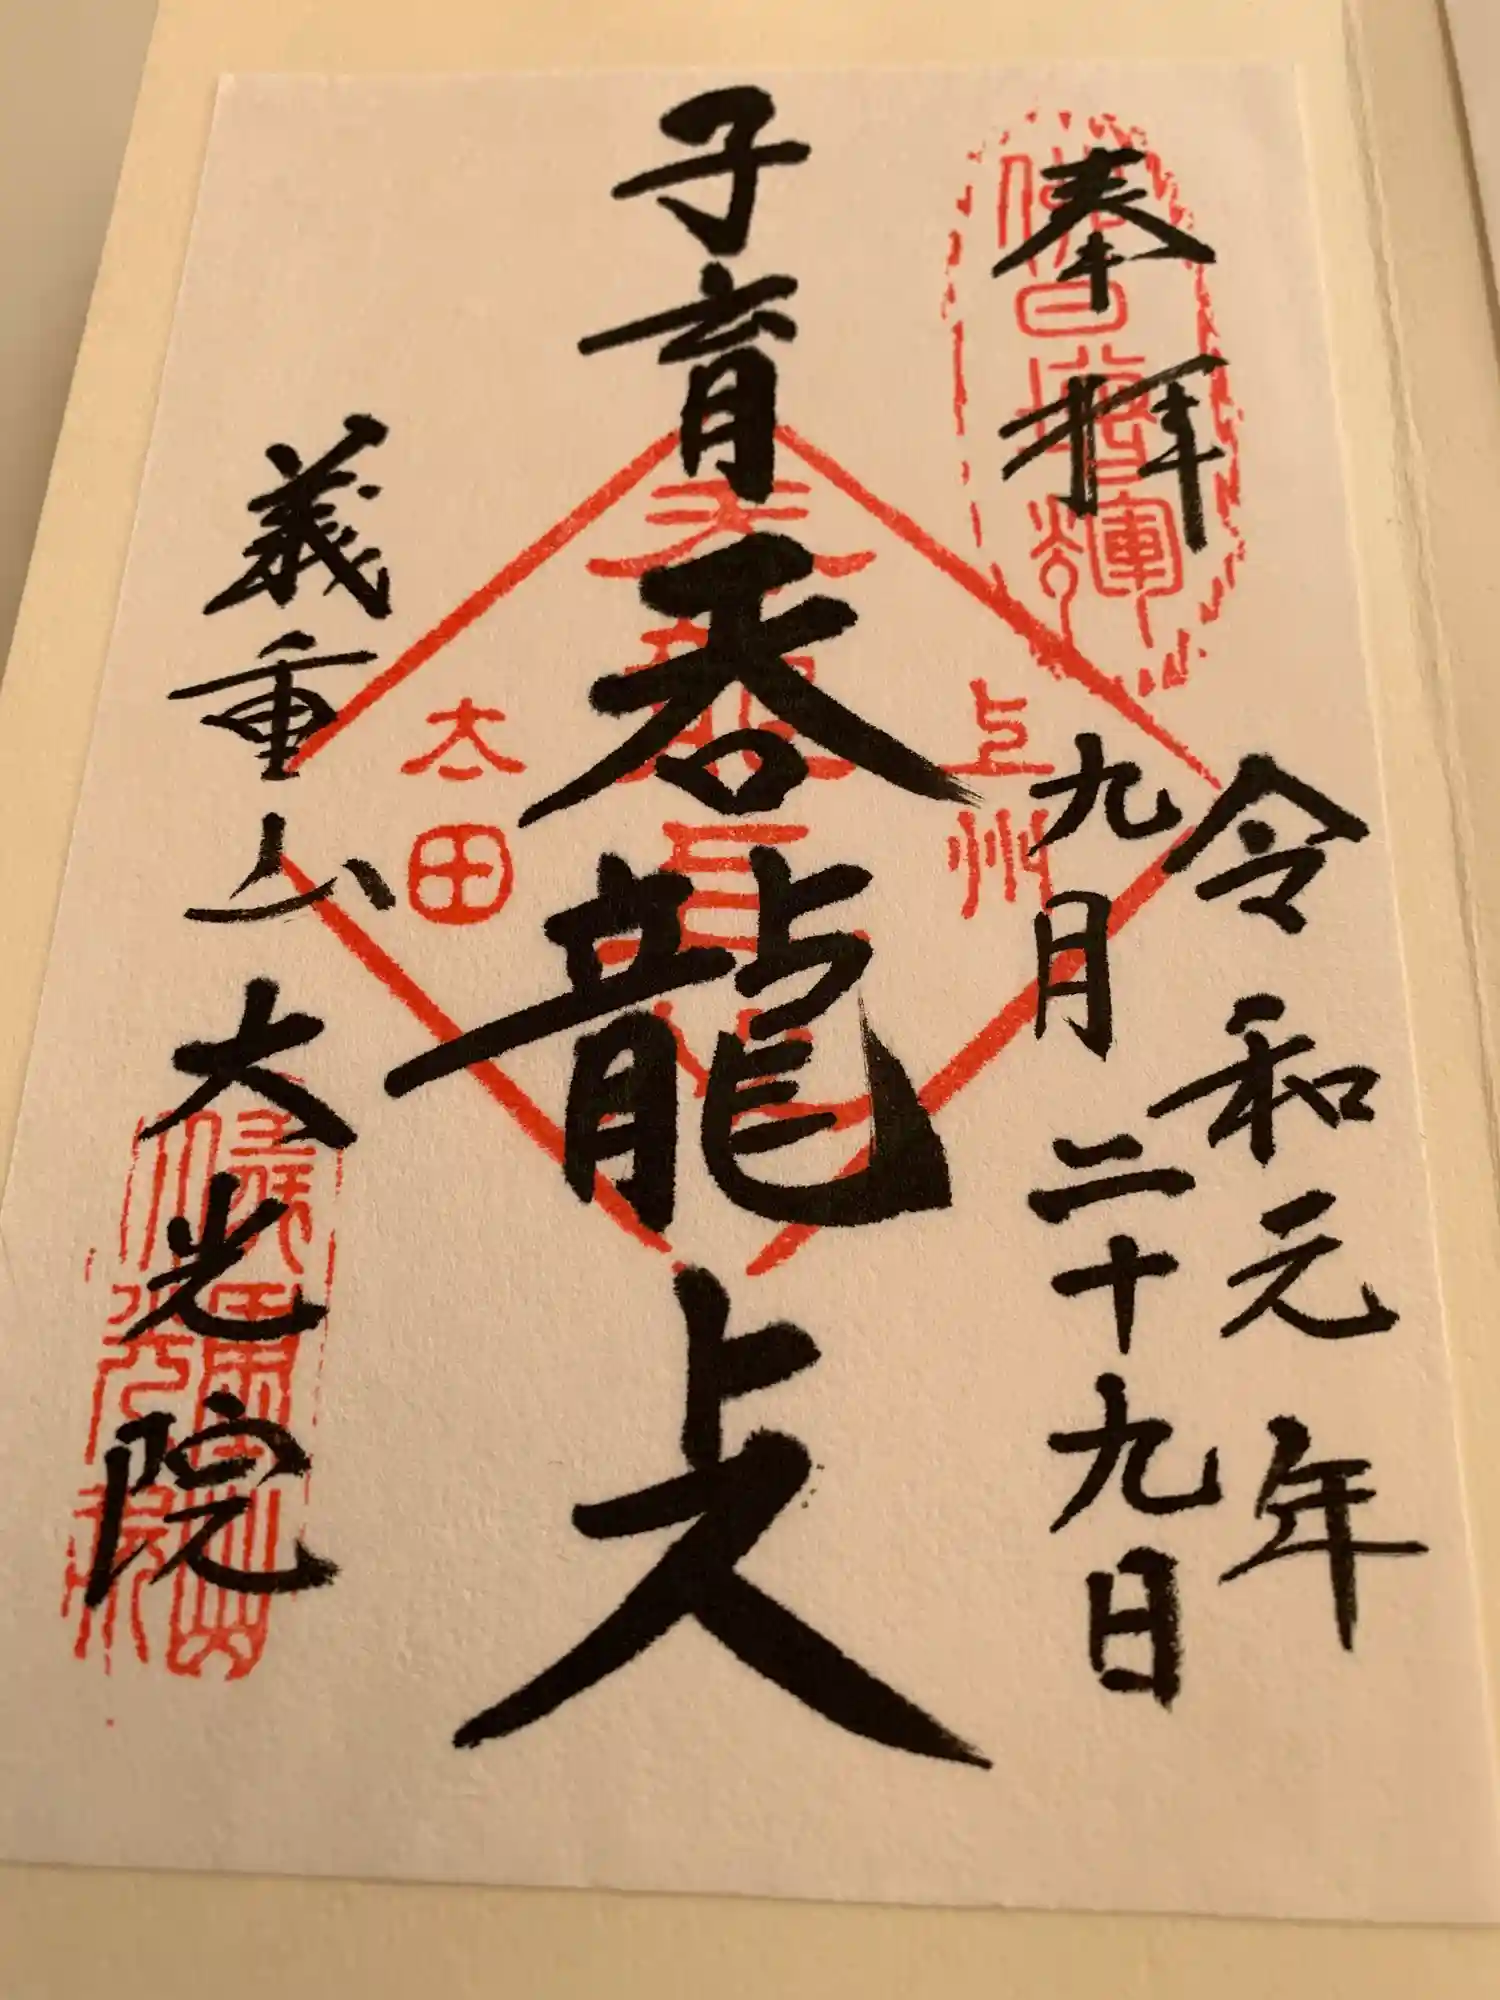 奉拝
令和元年
九月二十九日
子育呑龍上人
上州
太田
義重山大光院